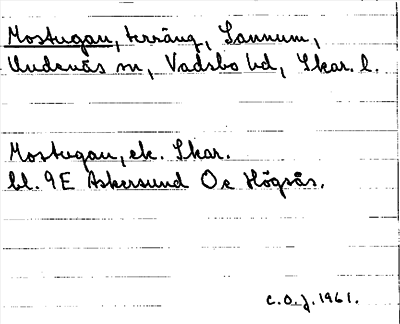 Mostugan, terräng, Sannum,
Undenäs sn, Vadsbo hd, Skar. l.
Mostugan, ek. Skar.
bl. 9E Askersund Öe Högsås.
C.O.J. 1961.